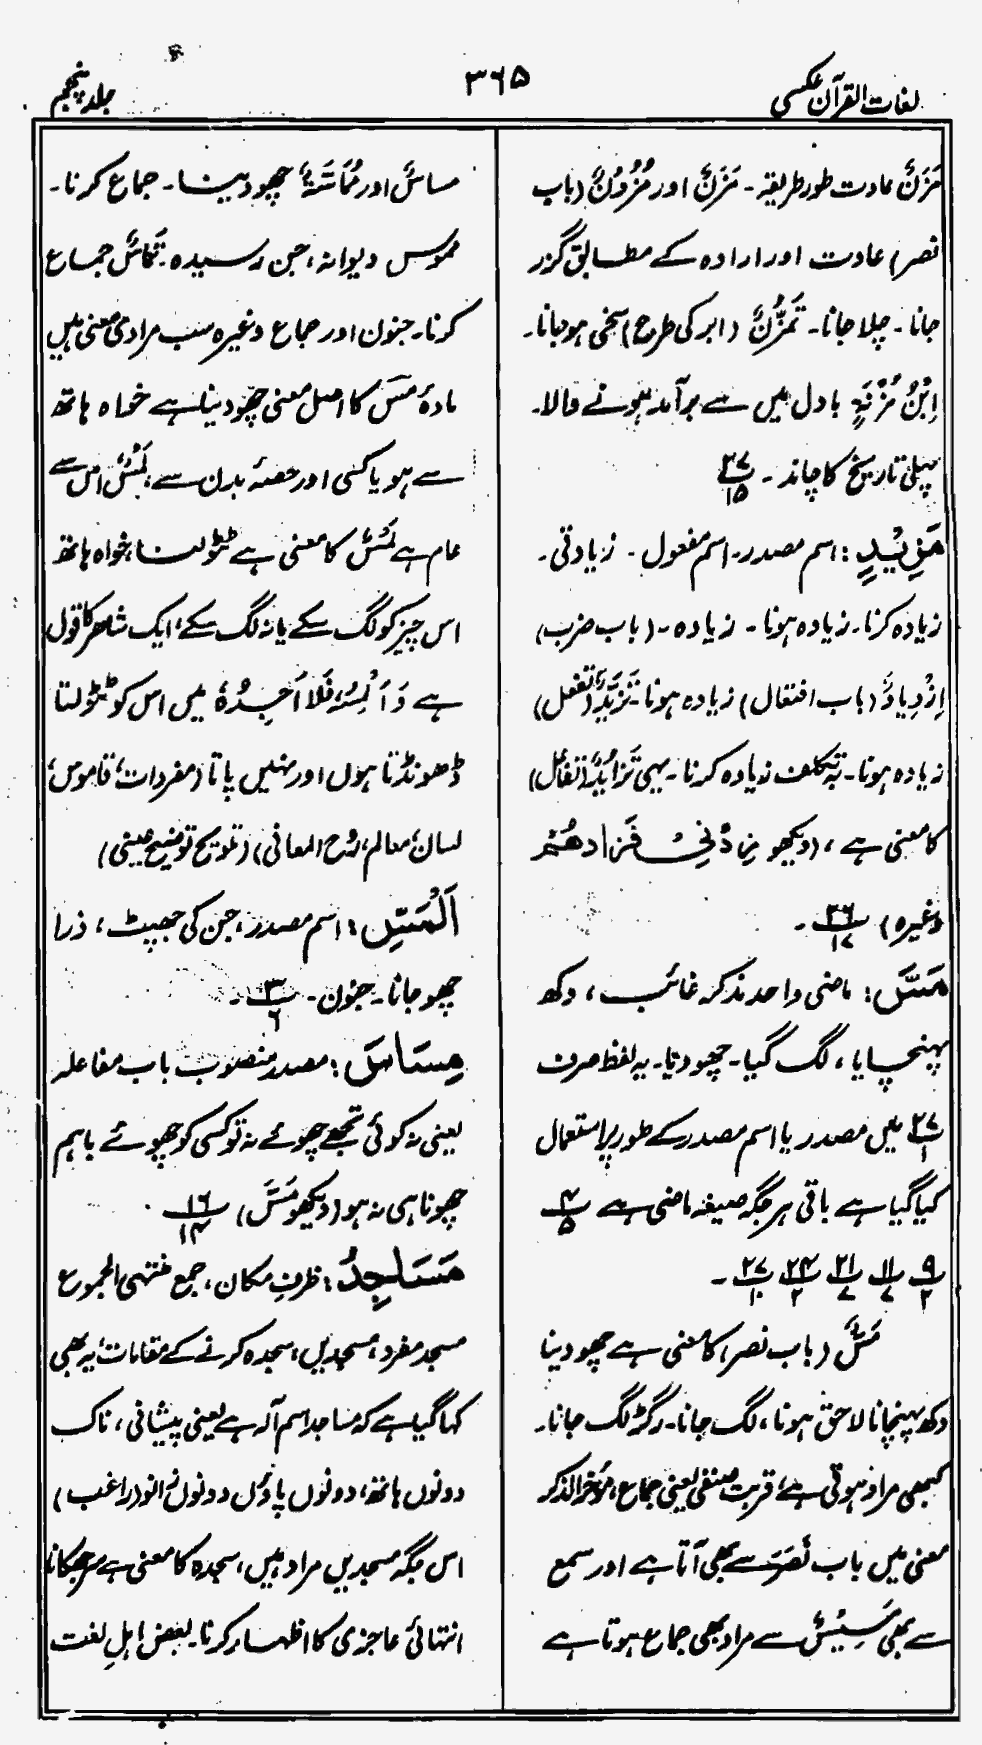 لغات القرآن عکسی
۳۶۵
جلد پنجم
مَزَنٌ عادت طور طریقہ ۔ مَزَنٌ اور مُزُوْنٌ (باب
نصر) عادت اور ارادہ کے مطابق گزر
جانا ۔ چلا جانا ۔ تَمَزُّنٌ (ابر کی طرح) سخی ہو جانا ۔
اِبْنُ مُزْنَۃٍ بادل میں سے برآمد ہونے والا ۔
پہلی تاریخ کا چاند ۔ ۲۷/۱۵
مَزِیْدٍ : اسم مصدر ۔ اسم مفعول ۔ زیادتی ۔
زیادہ کرنا ۔ زیادہ ہونا ۔ زیادہ ۔ (باب ضرب)
اِزْدِیادٌ (باب افتعال) زیادہ ہونا ۔ تَزَیُّدٌ (تفعل)
زیادہ ہونا ۔ بہ تکلف زیادہ کرنا ۔ یہی تَزَایُدٌ (تفاعل)
کا معنی ہے ، (دیکھو زِدْنِیْ فَزَادَهُمْ
وغیرہ) ۲۶/۱۷ ۔
مَسَّ : ماضی واحد مذکر غائب ، دکھ
پہنچایا ، لگ گیا ۔ چھو دیا ۔ یہ لفظ صرف
۲۷/۱ میں مصدر یا اسم مصدر کے طور پر استعمال
کیا گیا ہے باقی ہر جگہ صیغہ ماضی ہے ۴/۵
۹/۲ ۱۱/۷ ۲۱/۷ ۲۴/۲ ۲۷/۱۰ ۔
مَسٌّ (باب نصر) کا معنی ہے چھو دینا
دکھ پہنچانا لاحق ہونا ، لگ جانا ۔ رگڑ لگ جانا ۔
کبھی مراد ہوتی ہے ، قربت صنفی یعنی جماع ، مؤخر الذکر
معنی میں باب نَصَرَ سے بھی آتا ہے اور سمع
سے بھی مَسِیْسٌ سے مراد بھی جماع ہوتا ہے
مساسٌ اور مُمَاسَّۃٌ چھو دینا ۔ جماع کرنا ۔
ممسوس دیوانہ ، جن رسیدہ ۔ تَمَاسٌّ جماع
کرنا ۔ جنون اور جماع وغیرہ سب مرادی معنی ہیں
مادہ مَسَّ کا اصل معنی چھو دینا ہے خواہ ہاتھ
سے ہو یا کسی اور حصۂ بدن سے ، لَمْسٌ اس سے
عام ہے لَمْسٌ کا معنی ہے ٹٹولنا ، خواہ ہاتھ
اس چیز کو لگ سکے یا نہ لگ سکے ، ایک شاعر کا قول
ہے وَ اَلْمِسُہٗ فَلَا اَجِدُہٗ میں اس کو ٹٹولتا
ڈھونڈتا ہوں اور نہیں پاتا (مفردات ، قاموس ،
لسان ، معالم ، روح المعانی) (تلویح توضیح عینی)
اَلْمَسِّ : اسم مصدر ، جن کی جھپٹ ، ذرا
چھو جانا ۔ جنون ۔ ۳/۶ ۔
مِسَاسَ : مصدر منصوب باب مفاعلہ
یعنی نہ کوئی تجھے چھوئے نہ تو کسی کو چھوئے باہم
چھونا ہی نہ ہو (دیکھو مَسَّ) ۱۶/۱۴
مَسَاجِدُ : ظرف مکان ، جمع منتہی الجموع
مسجد مفرد ، مسجدیں ، سجدہ کرنے کے مقامات ، یہ بھی
کہا گیا ہے کہ مساجد اسم آلہ ہے یعنی پیشانی ، ناک
دونوں ہاتھ ، دونوں پاؤں دونوں زانو (راغب)
اس جگہ مسجدیں مراد ہیں ، سجدہ کا معنی ہے سر جھکانا
انتہائی عاجزی کا اظہار کرنا ۔ بعض اہلِ لغت